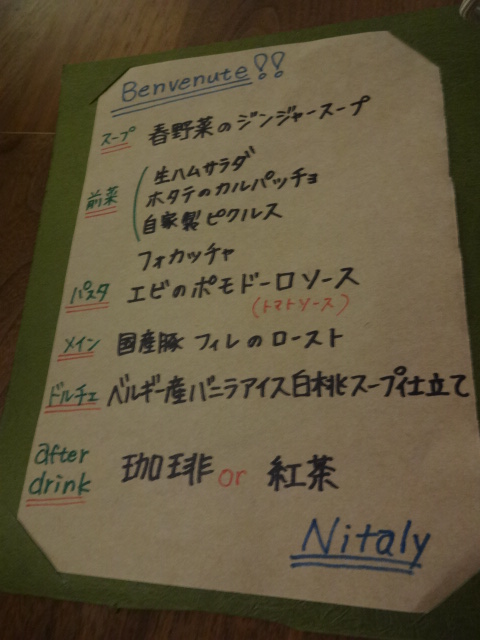 Benvenute!!
スープ 春野菜のジンジャースープ
前菜 生ハムサラダ
ホタテのカルパッチョ
自家製ピクルス
フォカッチャ
パスタ エビのポモドーロソース
(トマトソース)
メイン 国産豚 フィレのロースト
ドルチェ ベルギー産バニラアイス白桃スープ仕立て
after
drink 珈琲 or 紅茶
Nitaly